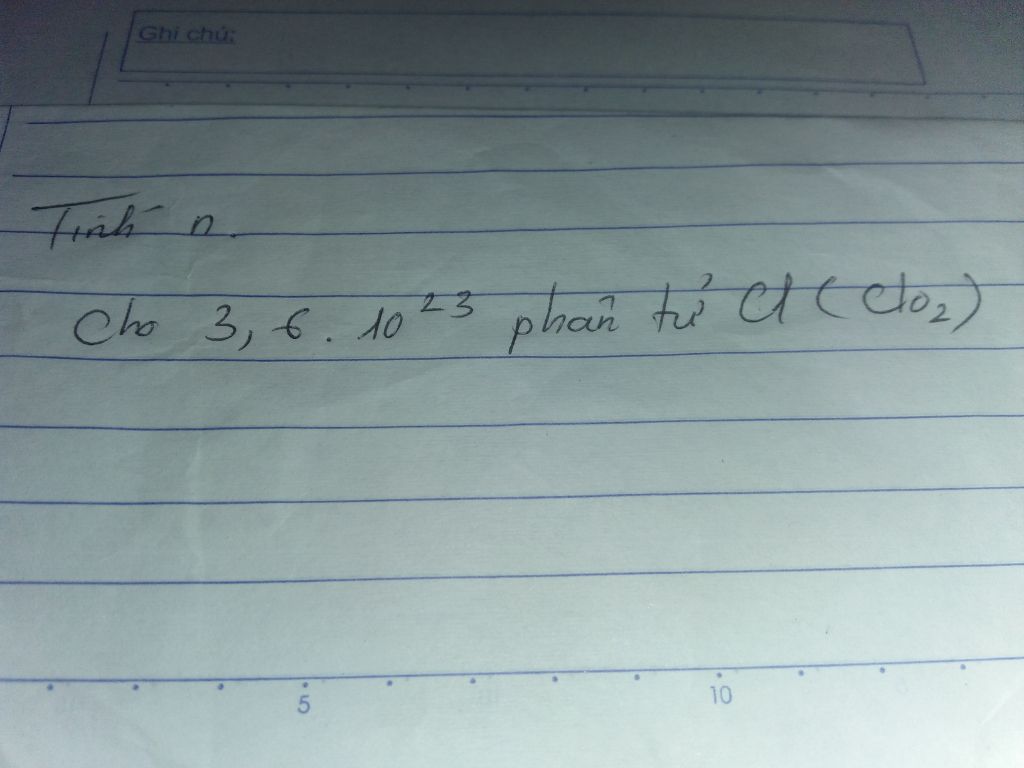 Ghi chú:
Tính n.
Cho 3,6.10²³ phân tử Cl (Clo₂)
5
10